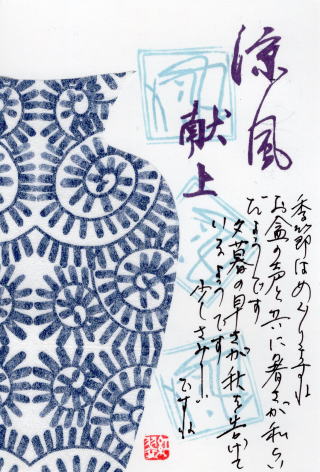 涼風
献上
季節はめぐりますね
お盆の声と共に暑さが和らい
だようです
夕暮の早さが秋を告げて
いるようです
少しさみしい
ですね